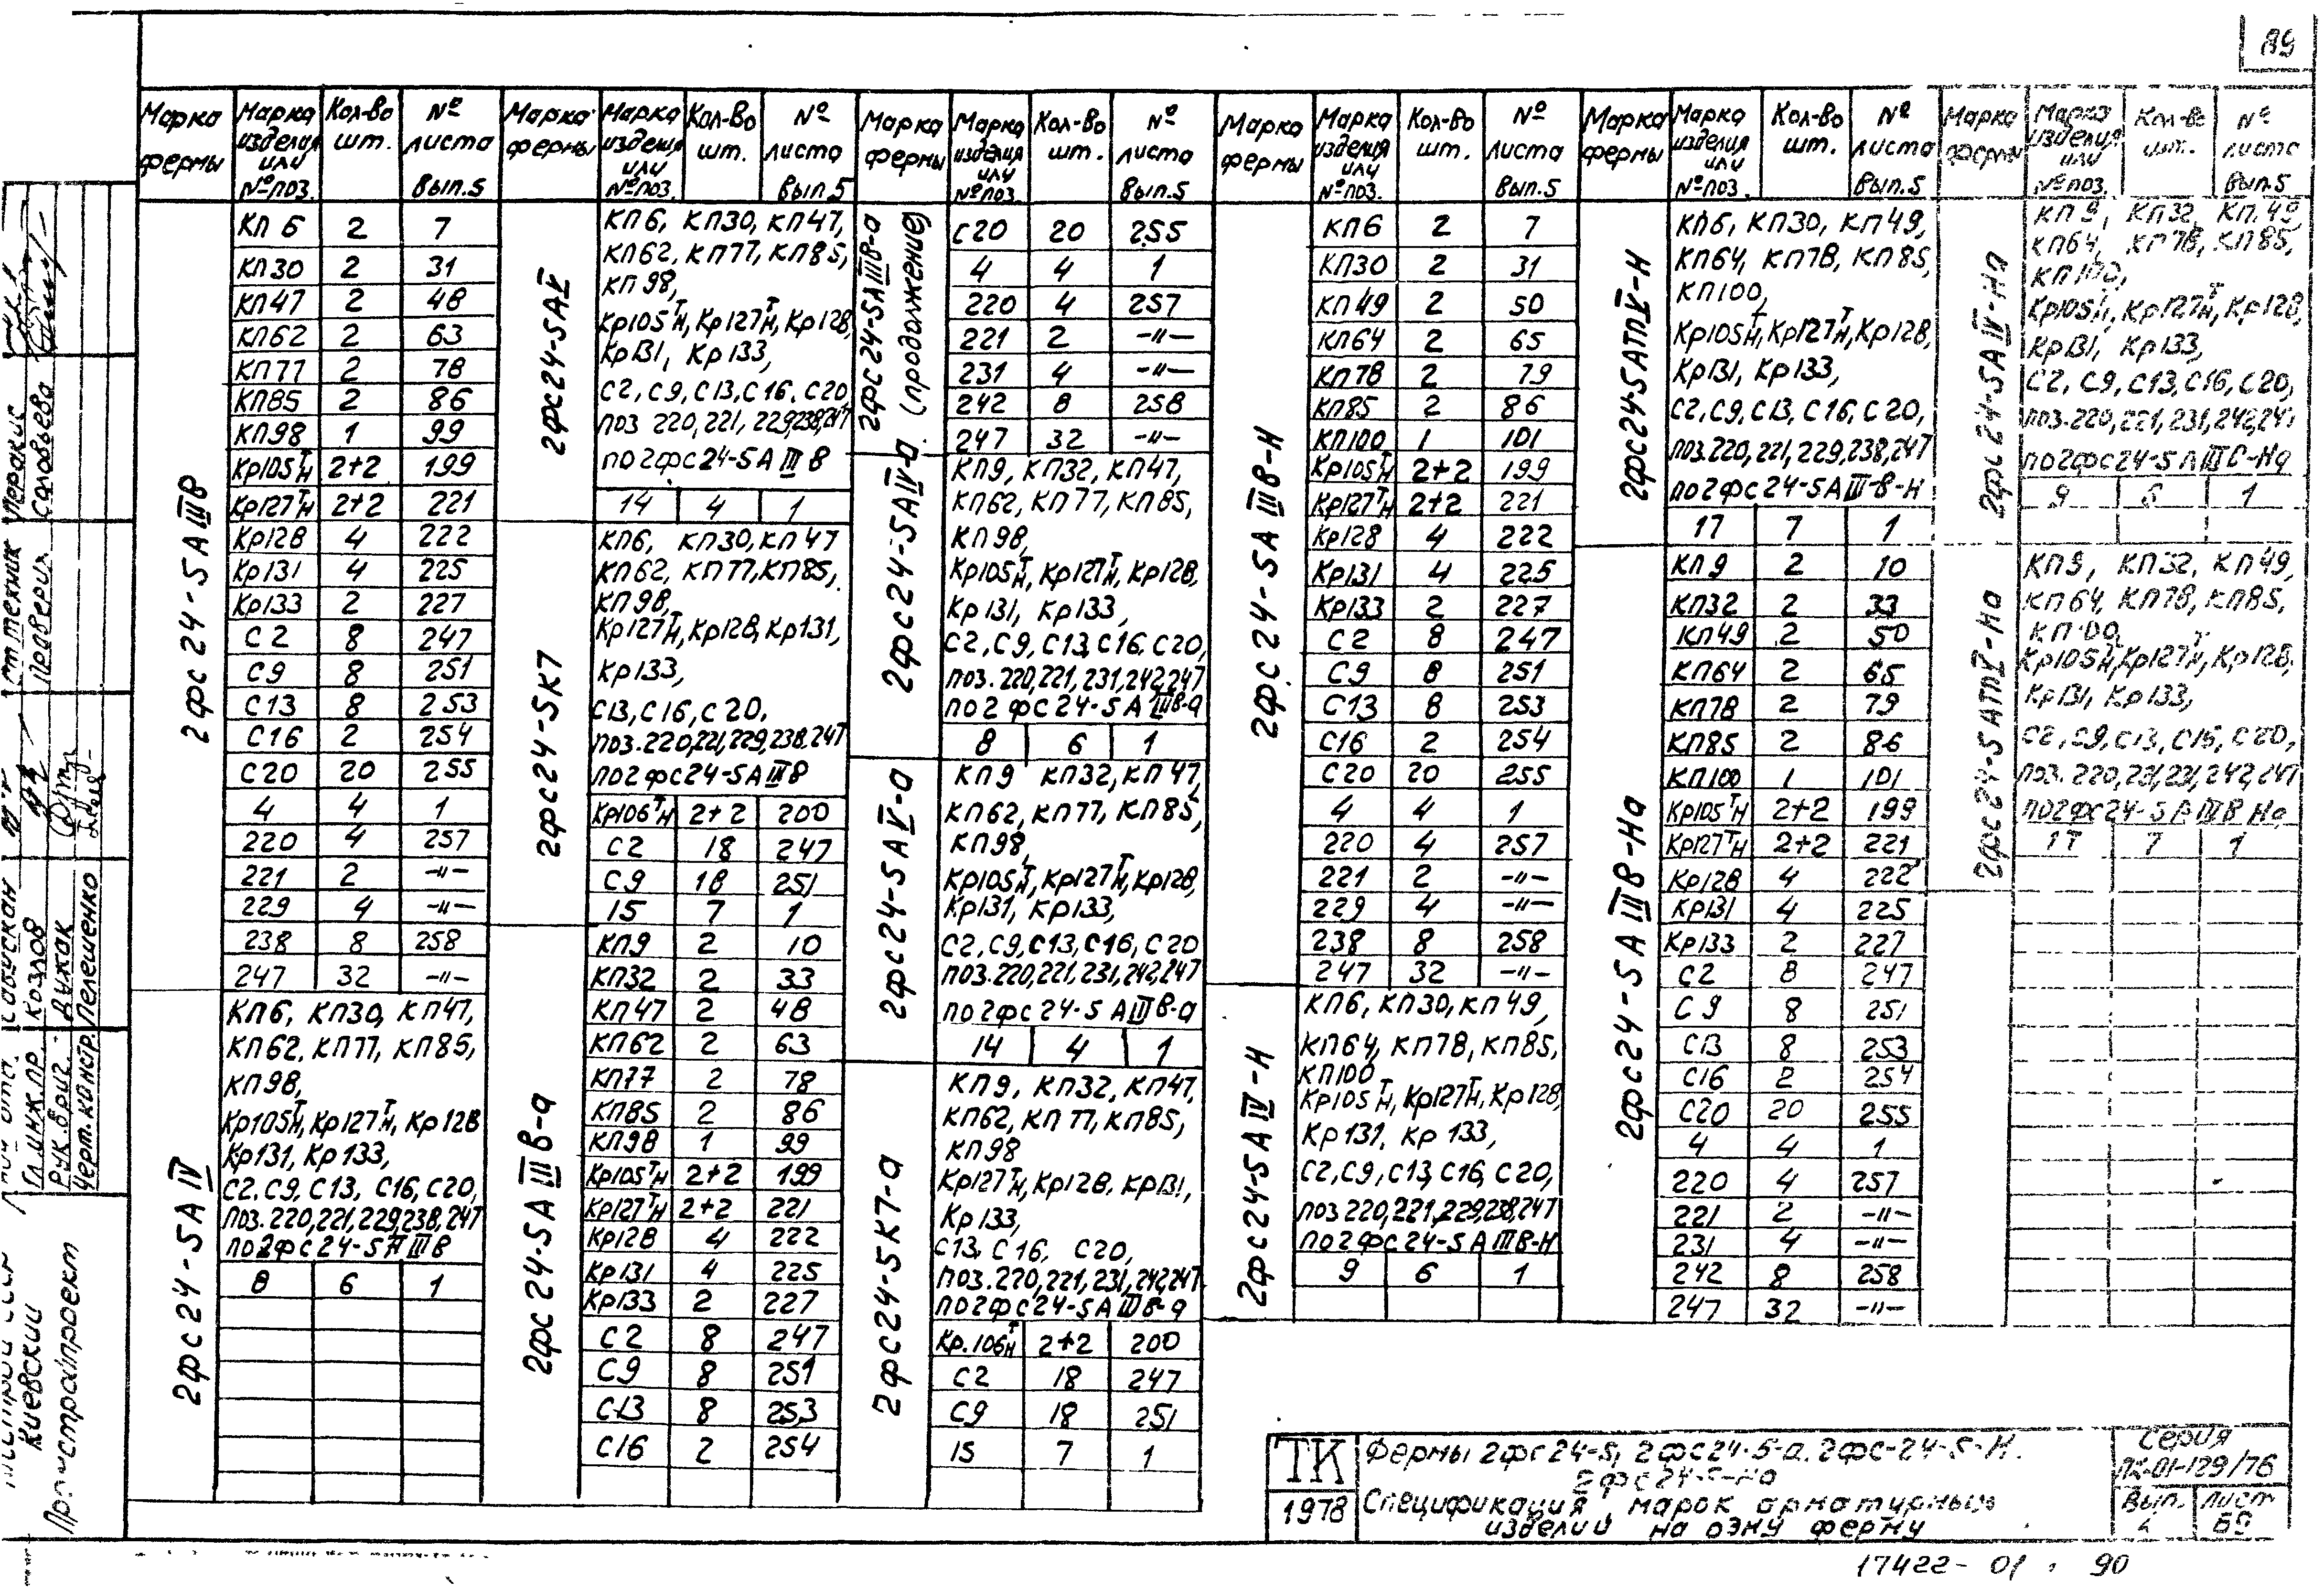 89
Марка фермы | Марка изделия или № поз. | Кол-во шт. | № листа Вып.5
2фс24-5АIIIВ
КП6 2 7
КП30 2 31
КП47 2 48
КП62 2 63
КП77 2 78
КП85 2 86
КП98 1 99
Кр105ТН 2+2 199
Кр127ТН 2+2 221
Кр128 4 222
Кр131 4 225
Кр133 2 227
С2 8 247
С9 8 251
С13 8 253
С16 2 254
С20 20 255
4 4 1
220 4 257
221 2 -〃-
229 4 -〃-
238 8 258
247 32 -〃-
2фс24-5АIV
КП6, КП30, КП47,
КП62, КП77, КП85,
КП98,
Кр105ТН, Кр127ТН, Кр128
Кр131, Кр133,
С2, С9, С13, С16, С20,
поз. 220, 221, 229, 238, 247
по 2фс24-5АIIIВ
8 6 1
Марка фермы | Марка изделия или № поз. | Кол-во шт. | № листа Вып.5
2фс24-5АV
КП6, КП30, КП47,
КП62, КП77, КП85,
КП98,
Кр105ТН, Кр127ТН, Кр128,
Кр131, Кр133,
С2, С9, С13, С16, С20,
поз 220, 221, 229, 238, 247
по 2фс24-5АIIIВ
14 4 1
2фс24-5К7
КП6, КП30, КП47
КП62, КП77, КП85,
КП98,
Кр127ТН, Кр128, Кр131,
Кр133,
С13, С16, С20,
поз. 220, 221, 229, 238, 247
по 2фс24-5АIIIВ
Кр106ТН 2+2 200
С2 18 247
С9 18 251
15 7 1
2фс24-5АIIIВ-а
КП9 2 10
КП32 2 33
КП47 2 48
КП62 2 63
КП77 2 78
КП85 2 86
КП98 1 99
Кр105ТН 2+2 199
Кр127ТН 2+2 221
Кр128 4 222
Кр131 4 225
Кр133 2 227
С2 8 247
С9 8 251
С13 8 253
С16 2 254
Марка фермы | Марка изделия или № поз. | Кол-во шт. | № листа Вып.5
2фс24-5АIIIВ-а (продолжение)
С20 20 255
4 4 1
220 4 257
221 2 -〃-
231 4 -〃-
242 8 258
247 32 -〃-
2фс24-5АIV-а
КП9, КП32, КП47,
КП62, КП77, КП85,
КП98,
Кр105ТН, Кр127ТН, Кр128,
Кр131, Кр133,
С2, С9, С13, С16, С20,
поз. 220, 221, 231, 242, 247
по 2фс24-5АIIIВ-а
8 6 1
2фс24-5АV-а
КП9 КП32, КП47,
КП62, КП77, КП85,
КП98,
Кр105ТН, Кр127ТН, Кр128,
Кр131, Кр133,
С2, С9, С13, С16, С20
поз. 220, 221, 231, 242, 247
по 2фс24-5АIIIВ-а
14 4 1
2фс24-5К7-а
КП9, КП32, КП47,
КП62, КП77, КП85,
КП98
Кр127ТН, Кр128, Кр131,
Кр133,
С13, С16, С20,
поз. 220, 221, 231, 242, 247
по 2фс24-5АIIIВ-а
Кр.106ТН 2+2 200
С2 18 247
С9 18 251
15 7 1
Марка фермы | Марка изделия или № поз. | Кол-во шт. | № листа Вып.5
2фс24-5АIIIВ-Н
КП6 2 7
КП30 2 31
КП49 2 50
КП64 2 65
КП78 2 79
КП85 2 86
КП100 1 101
Кр105ТН 2+2 199
Кр127ТН 2+2 221
Кр128 4 222
Кр131 4 225
Кр133 2 227
С2 8 247
С9 8 251
С13 8 253
С16 2 254
С20 20 255
4 4 1
220 4 257
221 2 -〃-
229 4 -〃-
238 8 258
247 32 -〃-
2фс24-5АIV-Н
КП6, КП30, КП49,
КП64, КП78, КП85,
КП100
Кр105ТН, Кр127ТН, Кр128,
Кр131, Кр133,
С2, С9, С13, С16, С20,
поз 220, 221, 229, 238, 247
по 2фс24-5АIIIВ-Н
9 6 1
Марка фермы | Марка изделия или № поз. | Кол-во шт. | № листа Вып.5
2фс24-5АТПV-Н
КП6, КП30, КП49,
КП64, КП78, КП85,
КП100,
Кр105ТН, Кр127ТН, Кр128,
Кр131, Кр133,
С2, С9, С13, С16, С20,
поз. 220, 221, 229, 238, 247
по 2фс24-5АIII-В-Н
17 7 1
2фс24-5АIIIВ-На
КП9 2 10
КП32 2 33
КП49 2 50
КП64 2 65
КП78 2 79
КП85 2 86
КП100 1 101
Кр105ТН 2+2 199
Кр127ТН 2+2 221
Кр128 4 222
Кр131 4 225
Кр133 2 227
С2 8 247
С9 8 251
С13 8 253
С16 2 254
С20 20 255
4 4 1
220 4 257
221 2 -〃-
231 4 -〃-
242 8 258
247 32 -〃-
Марка фермы | Марка изделия или № поз. | Кол-во шт. | № листа Вып.5
2фс24-5АIV-На
КП9, КП32, КП49,
КП64, КП78, КП85,
КП100,
Кр105ТН, Кр127ТН, Кр128,
Кр131, Кр133,
С2, С9, С13, С16, С20,
поз. 220, 221, 231, 242, 247
по 2фс24-5АIIIВ-На
9 6 1
2фс24-5АТПV-На
КП9, КП32, КП49,
КП64, КП78, КП85,
КП100,
Кр105ТН, Кр127ТН, Кр128,
Кр131, Кр133,
С2, С9, С13, С16, С20,
поз. 220, 221, 231, 242, 247
по 2фс24-5АIIIВ На
17 7 1
ТК
1978
Фермы 2фс24-5, 2фс24-5-а, 2фс-24-5-Н.
2фс24-5-На
Спецификация марок арматурных
изделий на одну ферму
Серия
ПК-01-129/76
Вып. 4
Лист 89
17422-01 90
Киевский
Промстройпроект
Гл.инж.пр. Козлов
Рук.бриг. Дужак
Черт.констр. Пелешенко
Ст техник
Проверил Соловьева